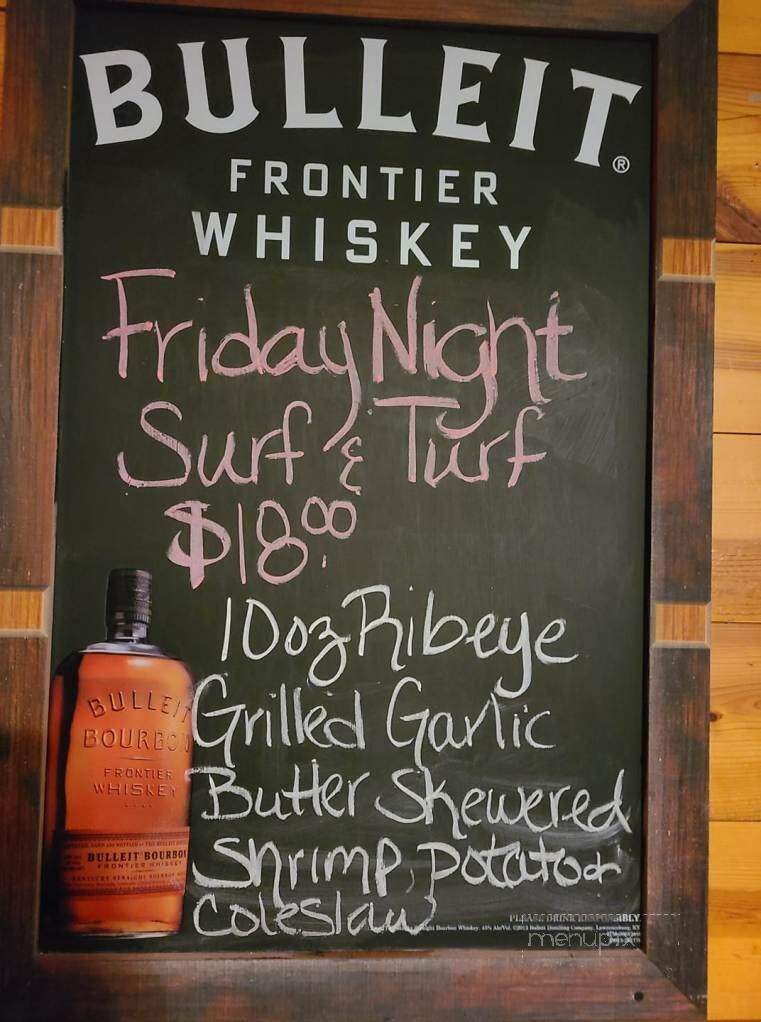 BULLEIT®
FRONTIER
WHISKEY
Friday Night
Surf & Turf
$18.00
10oz Ribeye
Grilled Garlic
Butter Skewered
Shrimp, Potato &
Coleslaw
BULLEIT
BOURBON
FRONTIER
WHISKEY
BULLEIT BOURBON
FRONTIER WHISKEY
KENTUCKY STRAIGHT BOURBON
PLEASE DRINK RESPONSIBLY.
Bourbon Whiskey. 45% Alc/Vol. ©2013 Bulleit Distilling Company, Lawrenceburg, KY
menupix